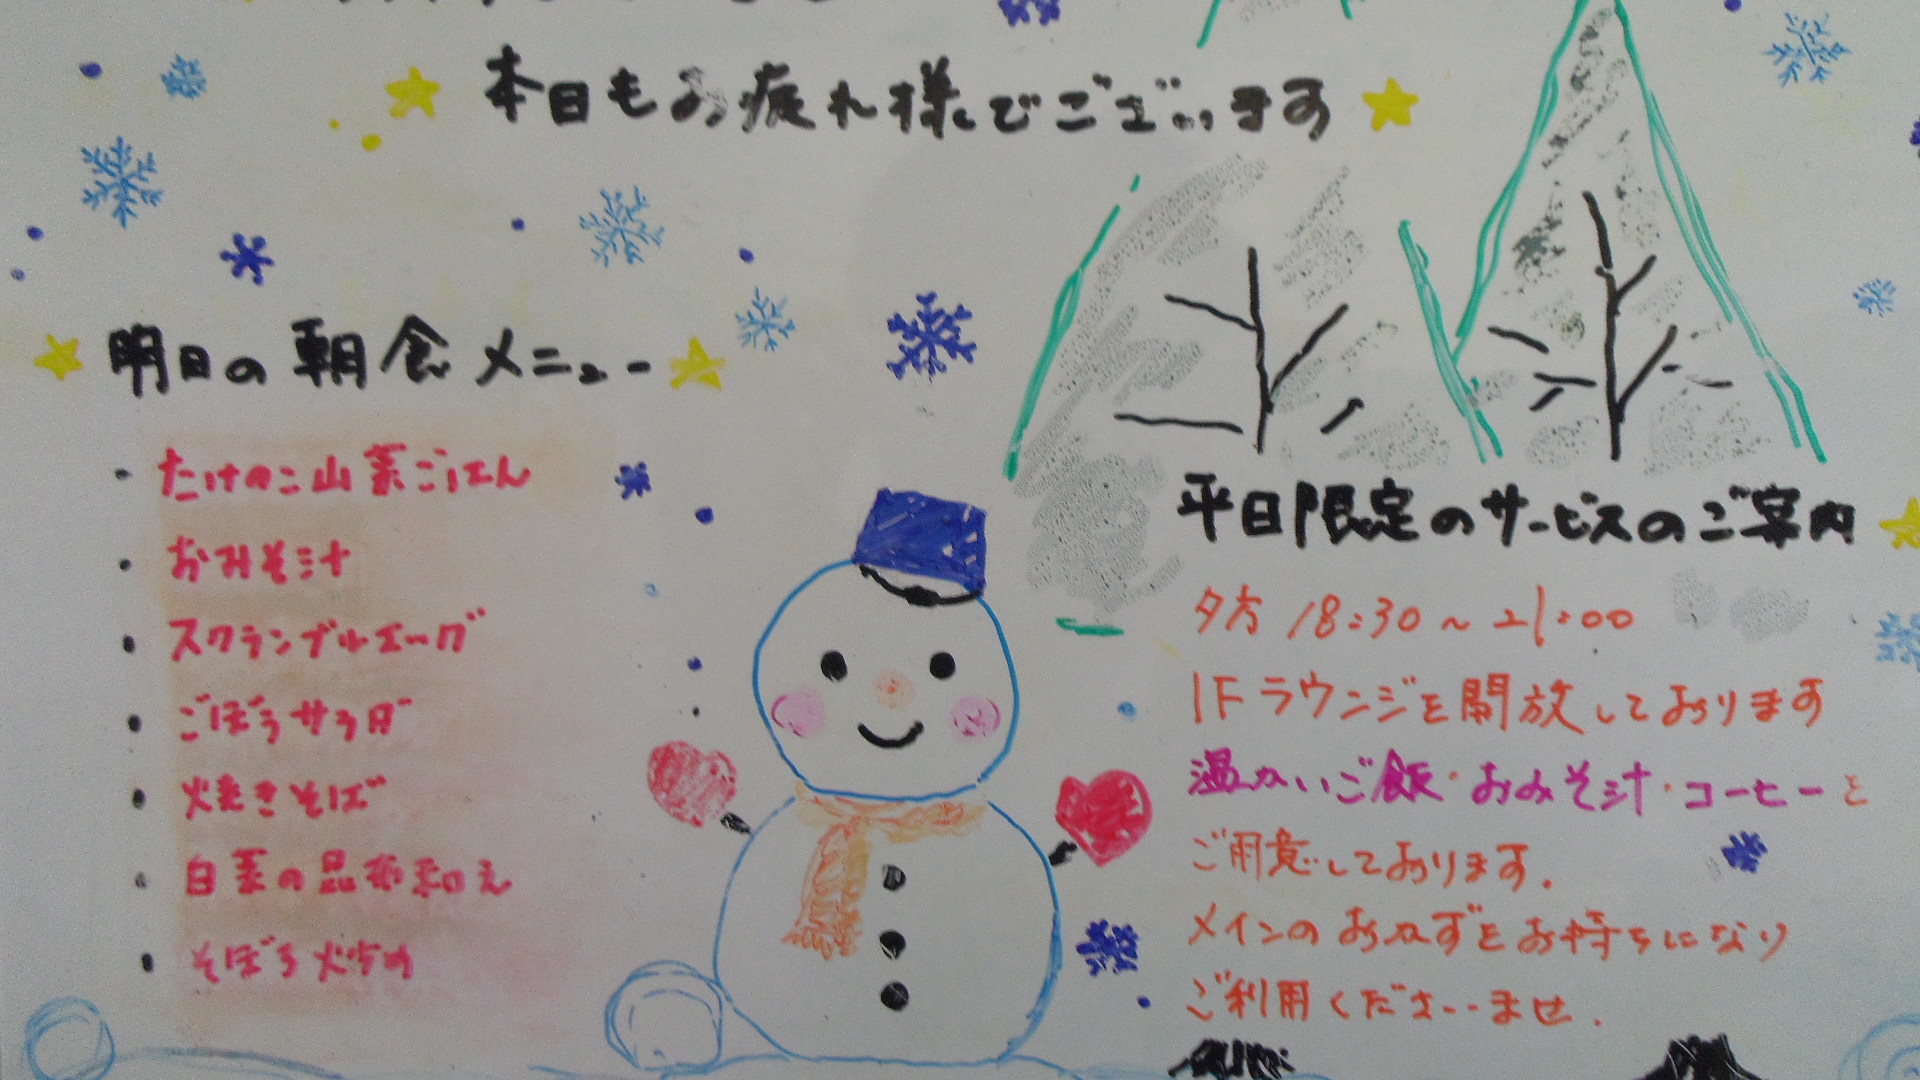 本日もお疲れ様でございます
明日の朝食メニュー
・たけのこ山菜ごはん
・おみそ汁
・スクランブルエッグ
・ごぼうサラダ
・焼きそば
・白菜の昆布和え
・そぼろ炒め
平日限定のサービスのご案内
夕方 18:30~21:00
1Fラウンジを開放しております
温かいご飯・おみそ汁・コーヒーと
ご用意しております.
メインのおかずをお持ちになり
ご利用くださいませ.